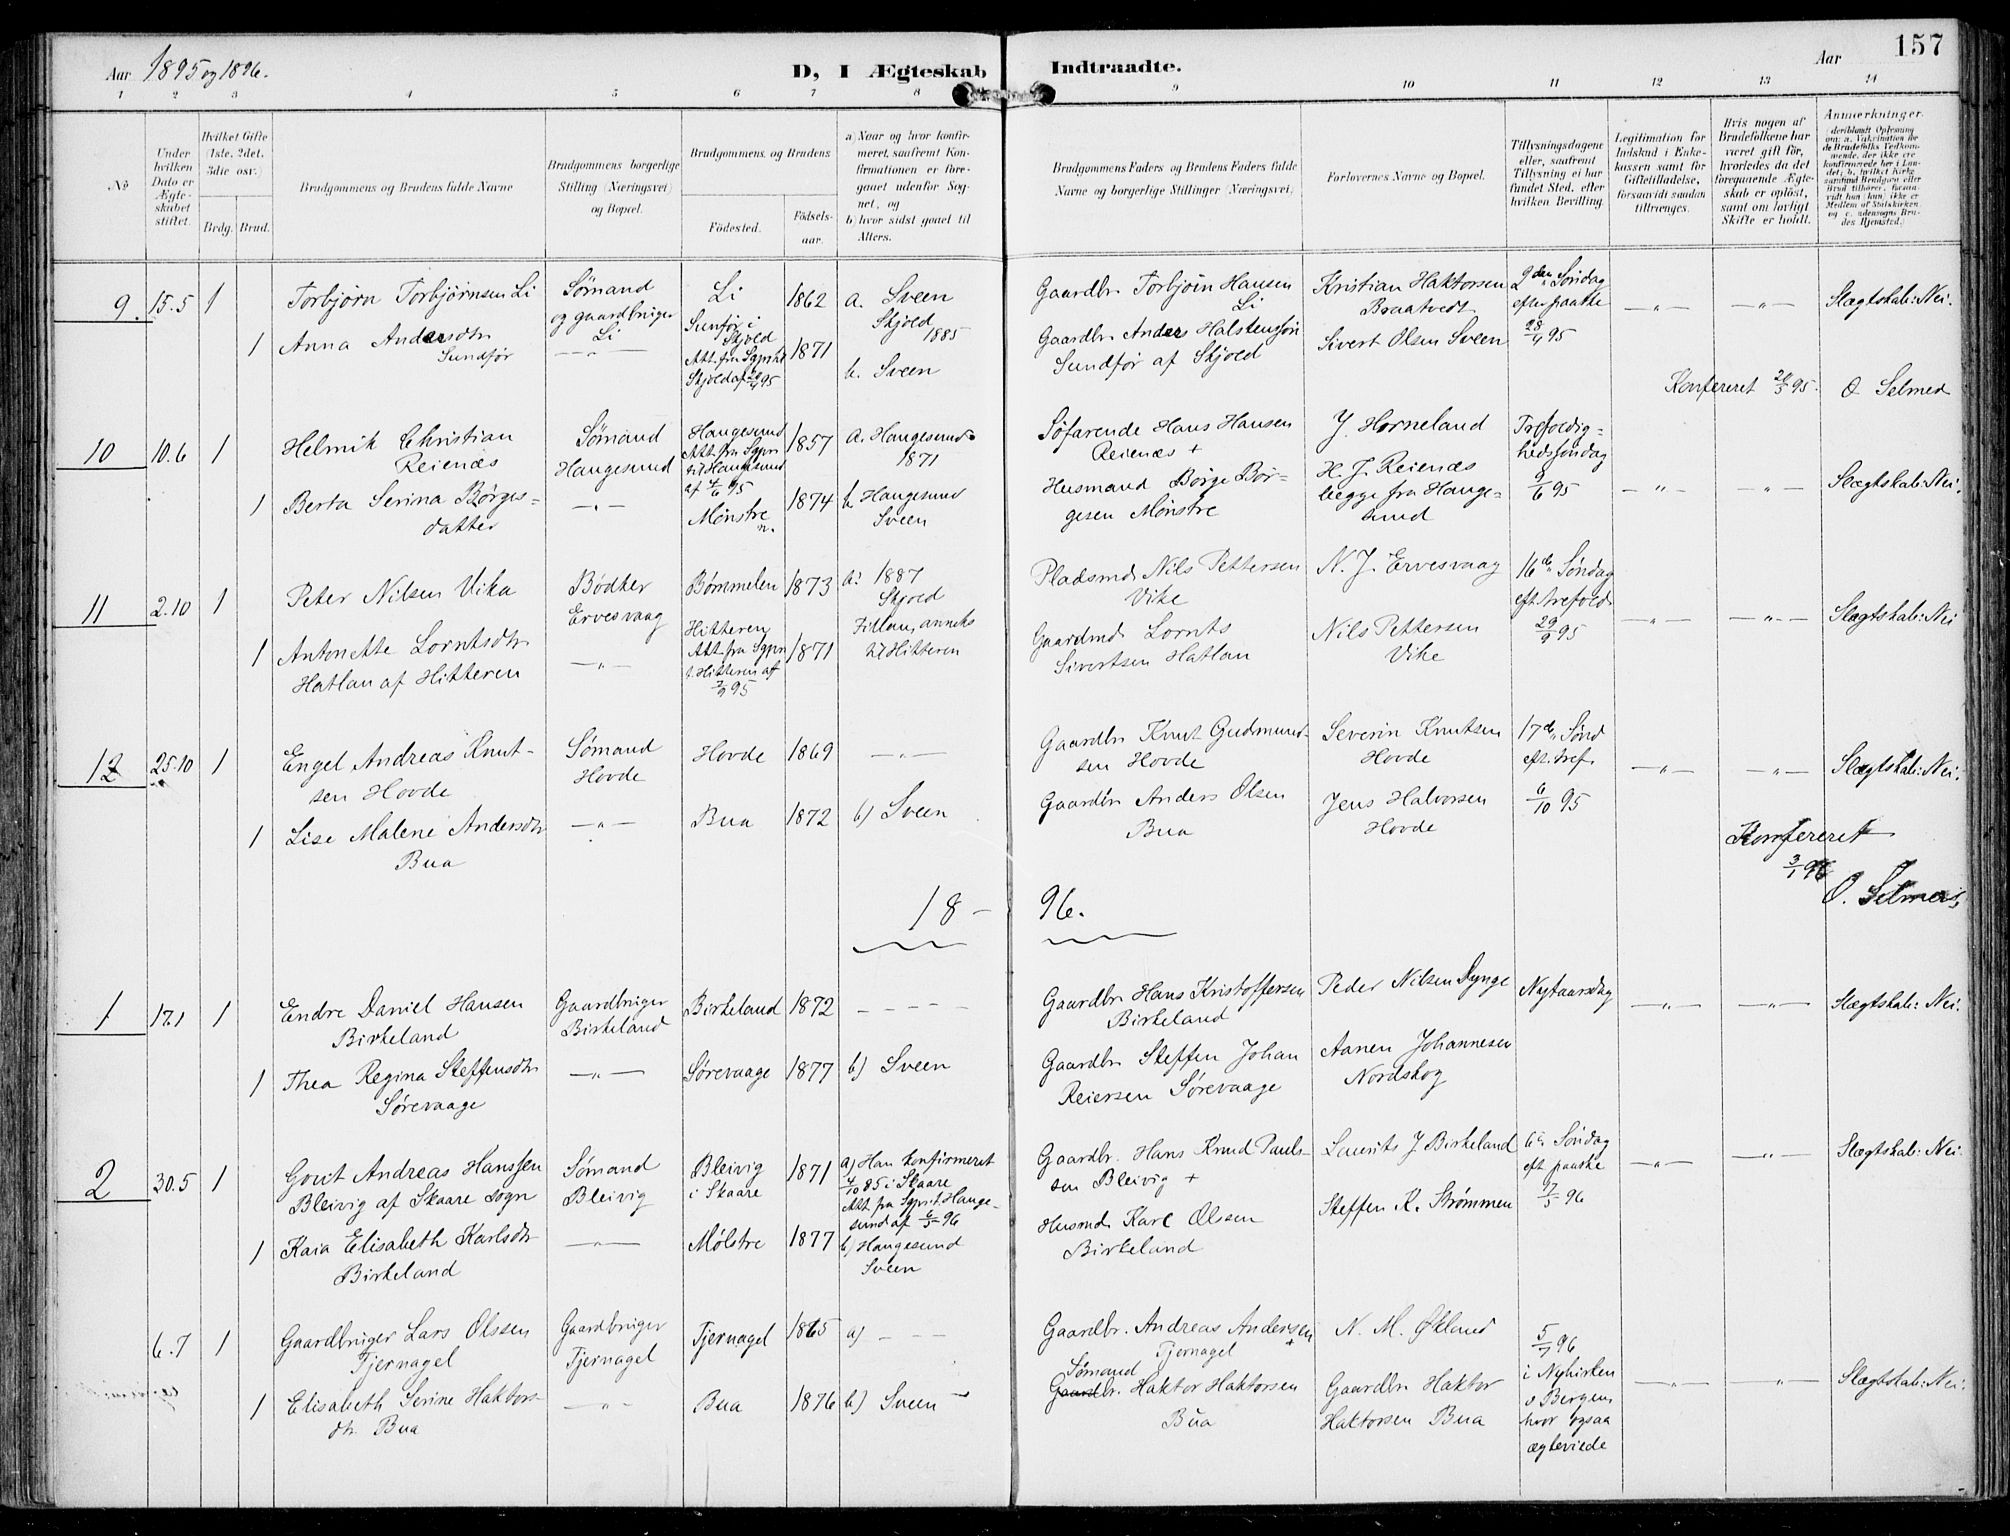 Aar 1895 og 1896.
D, I Ægteskab Indtraadte.
Aar
157
1 2 3 4 5 6 7 8 9 10 11 12 13 14
No
Under hvilken Dato er Ægteskabet stiftet.
Hvilket Gifte (1ste, 2det, 3die osv.)
Brdg. Brud.
Brudgommens og Brudens fulde Navne
Brudgommens borgerlige Stilling (Næringsvei) og Bopæl.
Brudgommens og Brudens
Födested.
Födselsaar.
a) Naar og hvor konfirmeret, saafremt Konfirmationen er foregaaet udenfor Sognet, og
b) hvor sidst gaaet til Alters.
Brudgommens Faders og Brudens Faders fulde Navne og borgerlige Stillinger (Næringsvei)
Forlovernes Navne og Bopæl.
Tillysningsdagene eller, saafremt Tillysning ei har fundet Sted, efter hvilken Bevilling.
Legitimation for Indskud i Enkekassen samt for Giftetilladelse, forsaavidt saadan tiltrænges.
Hvis nogen af Brudefolkene har været gift för, hvorledes da det foregaaende Ægteskab er oplöst, samt om lovligt Skifte er holdt.
Anmerkninger
9. 15.5 1
Torbjørn Torbjørnsen Li
Sømand og gaardbruger Li
Li
1862
a. Sveen Skjold 1885
Gaardbr Torbjørn Hansen Li
Kristian Haktorsen Braatvedt
2den Søndag efter paaske 28/4 95
Slægtskab: Nei.
1 Anna Andersdtr Sundfør
Sunfør i Skjold
Att. fra Sgprt
Skjold af 20/4 95
1871
b. Sveen
Gaardbr Anders Halstensøn Sundfør af Skjold
Sivert Olsen Sveen
Konfereret 20/5 95. O Selmer
10 10.6 1
Helmik Christian Reienæs
Sømand Haugesund
Haugesund
Att. fra Sgpn
til Haugesund
af 4/6 95
1857
a. Haugesund 1871
Søfarende Hans Hansen Reienæs +
J. Horneland
Trefoldighedssøndag 9/6 95
1 Berta Serina Børgesdatter
Mønstre n.
1874
b Haugesund Sveen
Husmand Børge Børgesen Mønstre
H. J. Reienæs
begge fra Haugesund
Slægtskab: Nei.
11 2.10 1
Peter Nilsen Vika
Bødker Ervesvaag
Bømmelen
1873
a: 1887 Skjold
Pladsmd Nils Pettersen Vike
N. J. Ervesvaag
16de Søndag eft. trefold. 29/9 95
Slægtskab: Nei
1 Antonette Lorntsdtr Hatlan af Hitteren
Hitteren
Att fra Sgpn
t. Hitteren af
7/9 95
1871
Fillan, anneks til Hitteren
Gaardmd Lornts Sivertsen Hatlan
Nils Pettersen Vike
12 25.10 1
Engel Andreas Knutsen Hovde
Sømand Hovde
Hovde
1869
Gaardbr Knut Gudmundsen Hovde
Severin Knutsen Hovde
17de Sønd eft. tref. 6/10 95
Slægtskab: Nei.
1 Lise Malene Andersdtr Bua
Bua
1872
b) Sveen
Gaardbr Anders Olsen Bua
Jens Halvorsen Hovde
Konfereret 3/1 96
O. Selmer.
18-96.
1 17.1 1
Endre Daniel Hansen Birkeland
Gaardbruger Birkeland
Birkeland
1872
Gaardbr Hans Kristoffersen Birkeland
Peder Nilsen Dynge
Nytaarsdag
Slægtskab: Nei.
1 Thea Regina Steffensdtr Sørevaage
Sørevaage
1877
b) Sveen
Gaardbr Steffen Johan Reiersen Sørevaage
Aanen Johannesen Nordskog
2 30.5 1
Govit Andreas Hanssen Bleivig af Skaare sogn
Sømand Bleivig
Bleivig i Skaare
1871
a) Han konfirmeret
4/10 85 i Skaare
Att. fra Sgpr. t. Haugesund af 6/5 96
Gaardbr. Hans Knud Paulsen Bleivig +
Laurits J Birkeland
6te Søndag eft paaske 17/5 96
Slægtskab: Nei.
1 Kaia Elisabeth Karlsdtr Birkeland
Mølstre
1877
b) Haugesund Sveen
Husmd Karl Olssen Birkeland
Steffen K. Strømmen
6.7 1
Gaardbruger Lars Olssen Tjernagel
Gaardbruger Tjernagel
Tjernagel
1865
a)
Gaardbr. Andreas Andersen + Tjernagel
N. M. Økland
5/7 96 i Nykirken i Bergen hvor ogsaa ægteviede
Slægtskab: Nei.
1 Elisabeth Serine Haktorsdtr Bua
Bua
1876
b) Sveen
Sømand Gaardbr. Haktor Haktorsen Bua
Gaardbr Haktor Haktorsen Bua